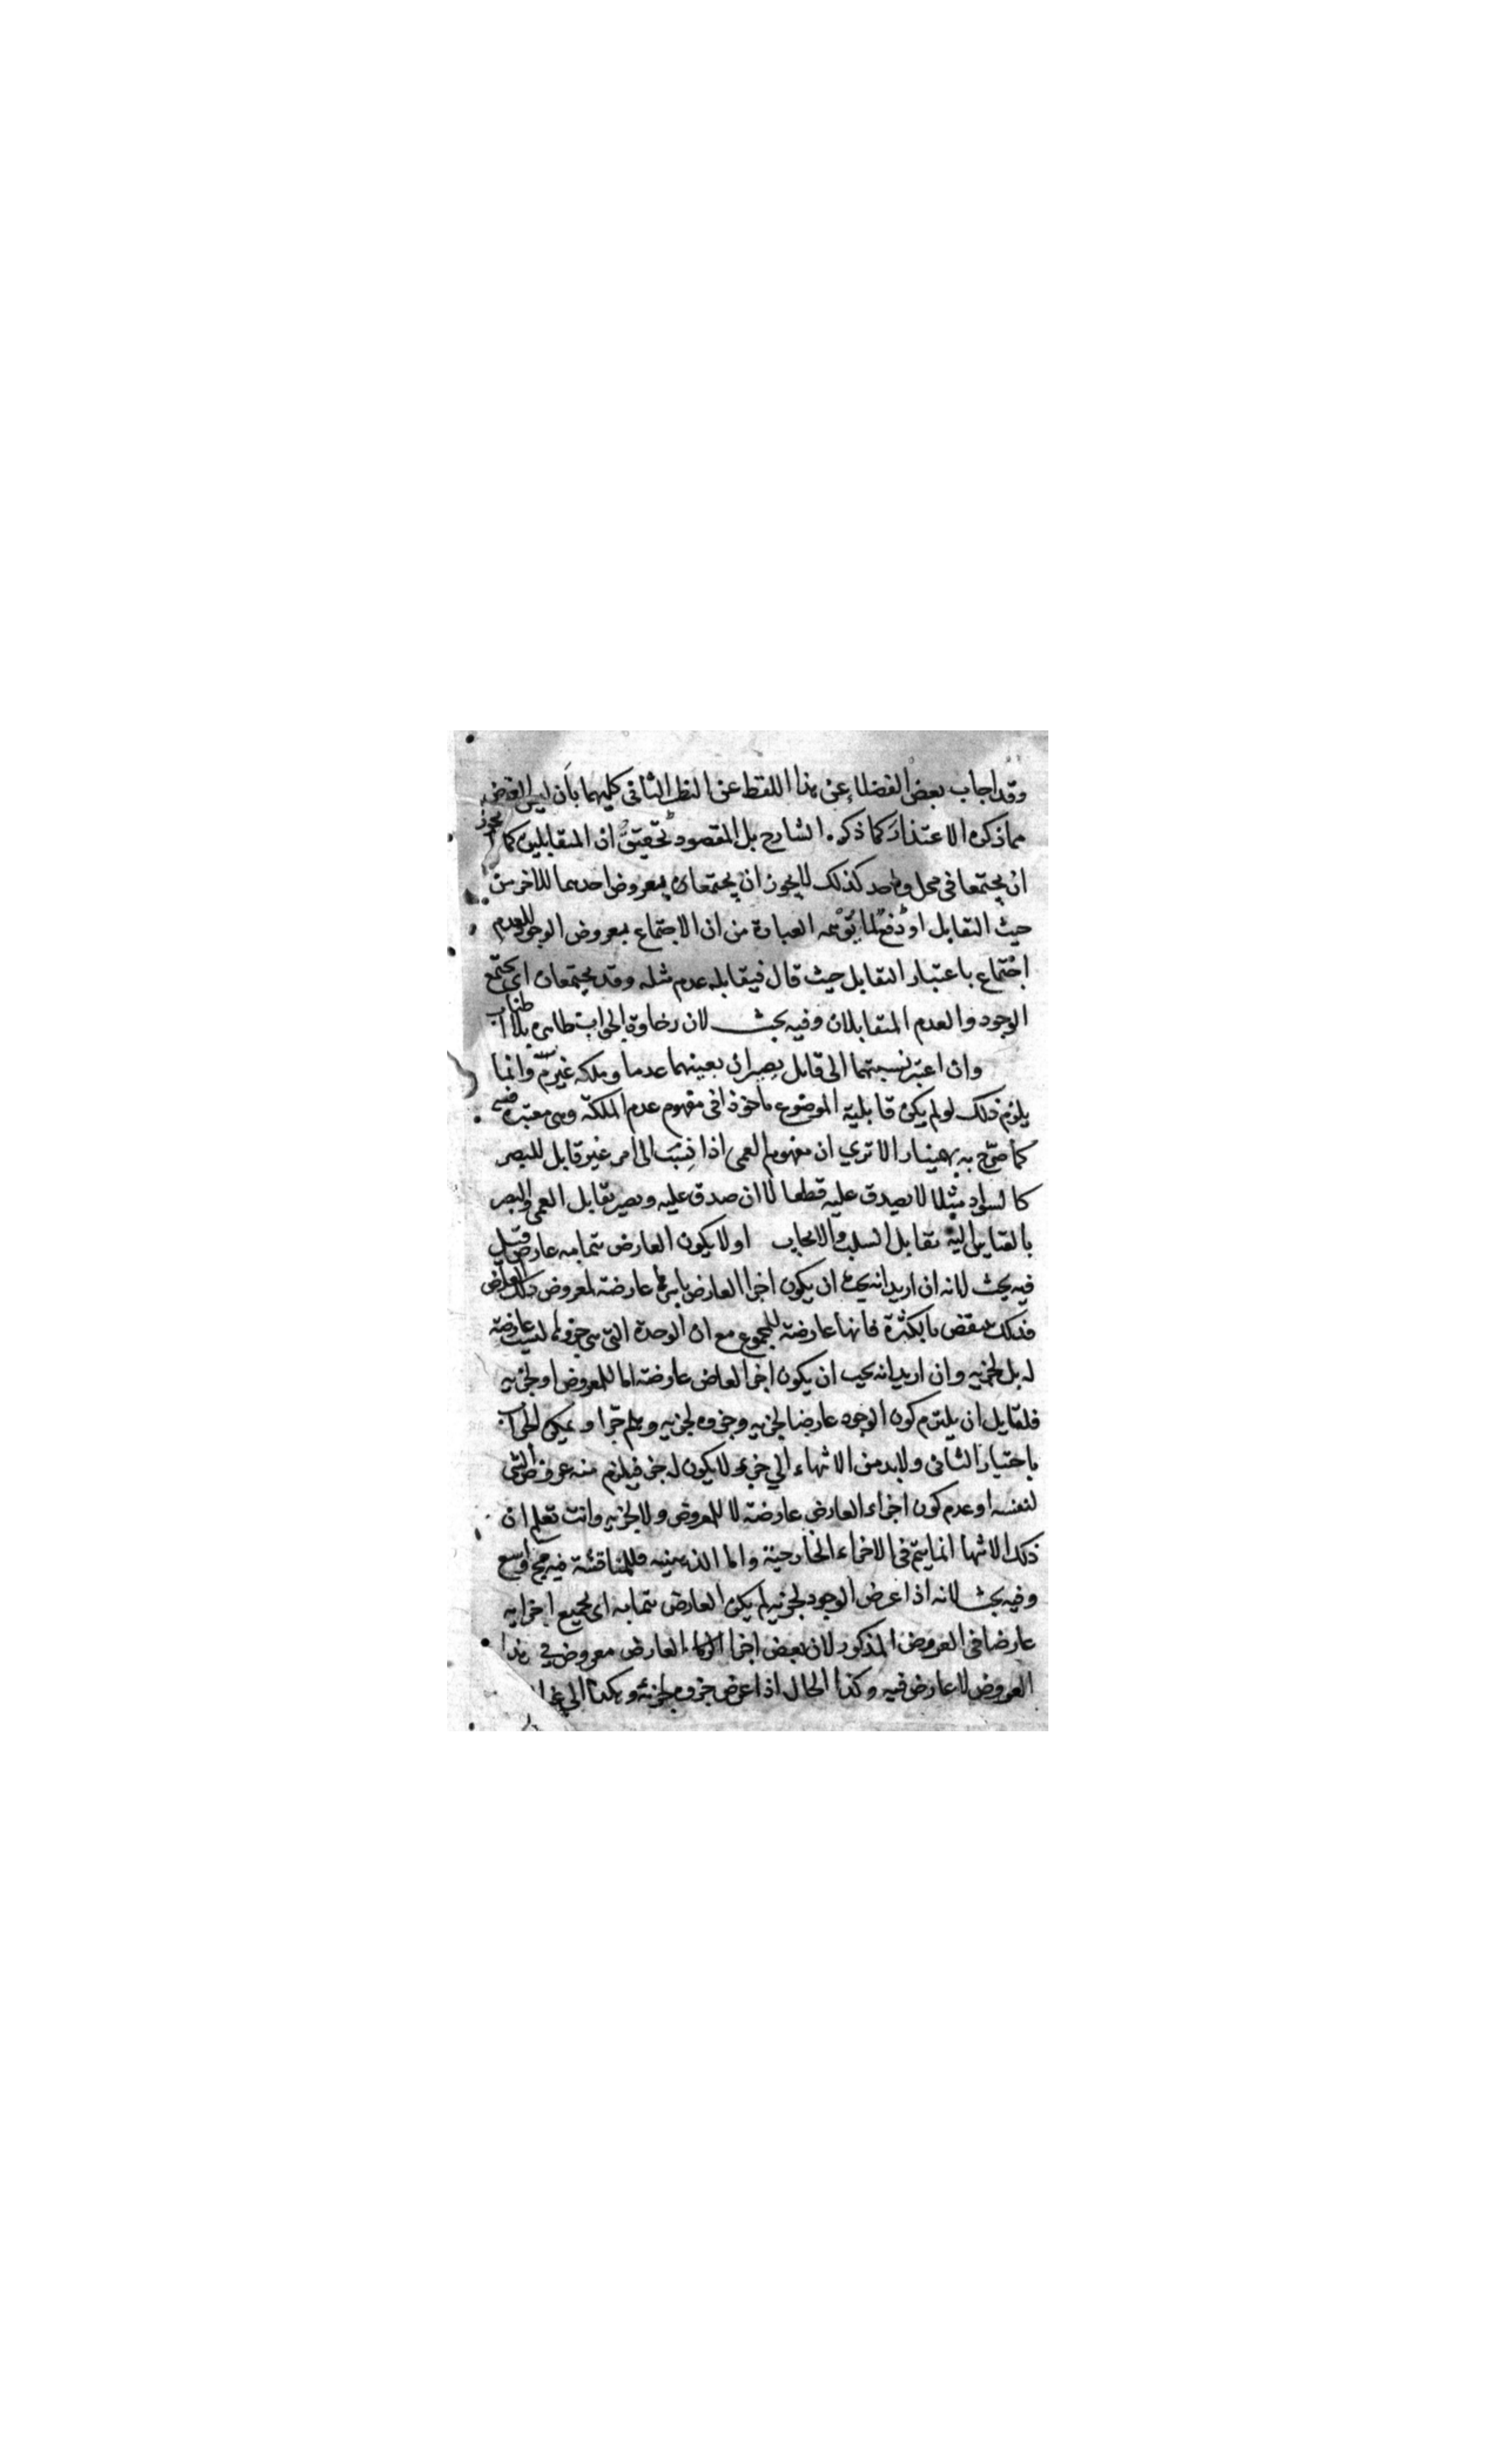 وقد اجاب بعض الفضلاء عن هذا اللفظ عن النظر الثاني كليهما بان ليس الغرض
مما ذكره الاعتذار كما ذكره الشارح بل المقصود تحقيق ان المتقابلين كما لا يجوز
ان يجتمعا في محل واحد كذلك لا يجوز ان يجتمعان بعروض احدهما للاخر من
حيث التقابل او دفع لما يوهمه العبارة من ان الاجتماع بعروض الوجود للعدم
اجتماع باعتبار التقابل حيث قال فيقابله عدم مثله وقد يجتمعان اي يجتمع
الوجود والعدم المتقابلان وفيه بحث لان رخاوة الجواب ظاهرة بلا اطناب
وان اعتبر نسبتهما الى قابل يصيران بعينهما عدما وملكه غير مسلم وانما
يلزم ذلك لو لم يكن قابلية الموضوع ماخوذا في مفهوم عدم الملكة وهى معتبرة فيه
كما صرح به بهمنيار الا ترى ان مفهوم العمى اذا نسب الى امر غير قابل للبصر
كالسواد مثلا لا يصدق عليه قطعا لا ان صدق عليه ويصير تقابل العمى والبصر
بالقياس اليه تقابل السلب والايجاب او لا يكون العارض بتمامه عارض قيل
فيه بحث لانه ان اريد انه يجب ان يكون اجزا العارض باسرها عارضة لمعروض ذلك العارض
فذلك ينقض بالكثرة فانها عارضة للمجموع مع ان الوحدة التي هي جزؤها ليست عارضة
له بل لجزيه وان اريد انه يجب ان يكون اجزا العارض عارضة اما للمعروض او لجزيه
فلقايل ان يلتزم كون الوجود عارضا لجزيه وجزوه لجزيه وهلم جرا ويمكن الجواب
باختيار الثاني ولا بد من الانتهاء الى جزء لا يكون له جز فيلزم منه عروض الشي
لنفسه او عدم كون اجزاء العارض عارضة لا للمعروض ولا لجزيه وانت تعلم ان
ذلك الانتها انما يتم في الاجزاء الخارجية واما الذهنيه فللمناقشة فيه مجال واسع
وفيه بحث لانه اذا عرض الوجود لجزيه لم يكن العارض بتمامه اي لجميع اجزايه
عارضا في العروض المذكور لان بعض اجزا العارض معروض في هذا
العروض لا عارض فيه وكذا الحال اذا عرض جزوه لجزئه وهكذا الى